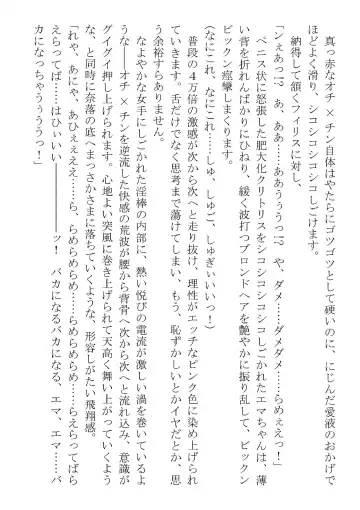 真っ赤なオチ×チン自体はやたらにゴツゴツとして硬いのに、にじんだ愛液のおかげで
ほどよく滑り、シコシコシコシコしごけます。
納得して頷くフィリスに対し、
「ンぇあっ!? あ、ああ……ああうぅうっ!? や、ダメ……ダメダメ……らめぇえっ！」
ペニス状に怒張した肥大化クリトリスをシコシコシコシコしごかれたエマちゃんは、薄
い背を折れんばかりにひねり、緩く波打つブロンドヘアを艶やかに振り乱して、ビックン
ビックン痙攣しまくります。
（なにこれ、なにこれ……しゅ、しゅご、しゅぎぃいいっ！）
普段の４万倍の激感が次から次へと走り抜け、理性がエッチなピンク色に染め上げられ
てしまいます。舌だけでなく思考まで蕩けてしまい、もう、恥ずかしいとかイヤだとか、思
う余裕すらありません。
なよやかな女手にしごかれた淫棒の内部に、熱い悦びの電流が激しい渦を巻いているよ
うな――オチ×チンを逆流した快感の荒波が腰から背骨へ次から次へと流れ込み、意識が
グイグイ押し上げられます。心地よい突風に巻き上げられて天高く舞い上がっていくよう
な、と同時に奈落の底へまっさかさまに落ちていくような、形容しがたい飛翔感。
「れゃ、あにゃ、あひぇえええ……ら、らめらめらめ……らめらめらめ……らえらってばら
えらってば――はひぃいい――――ッ！　バカになるバカになる、エマ、エマ……バ
カになっちゃううううっ！」